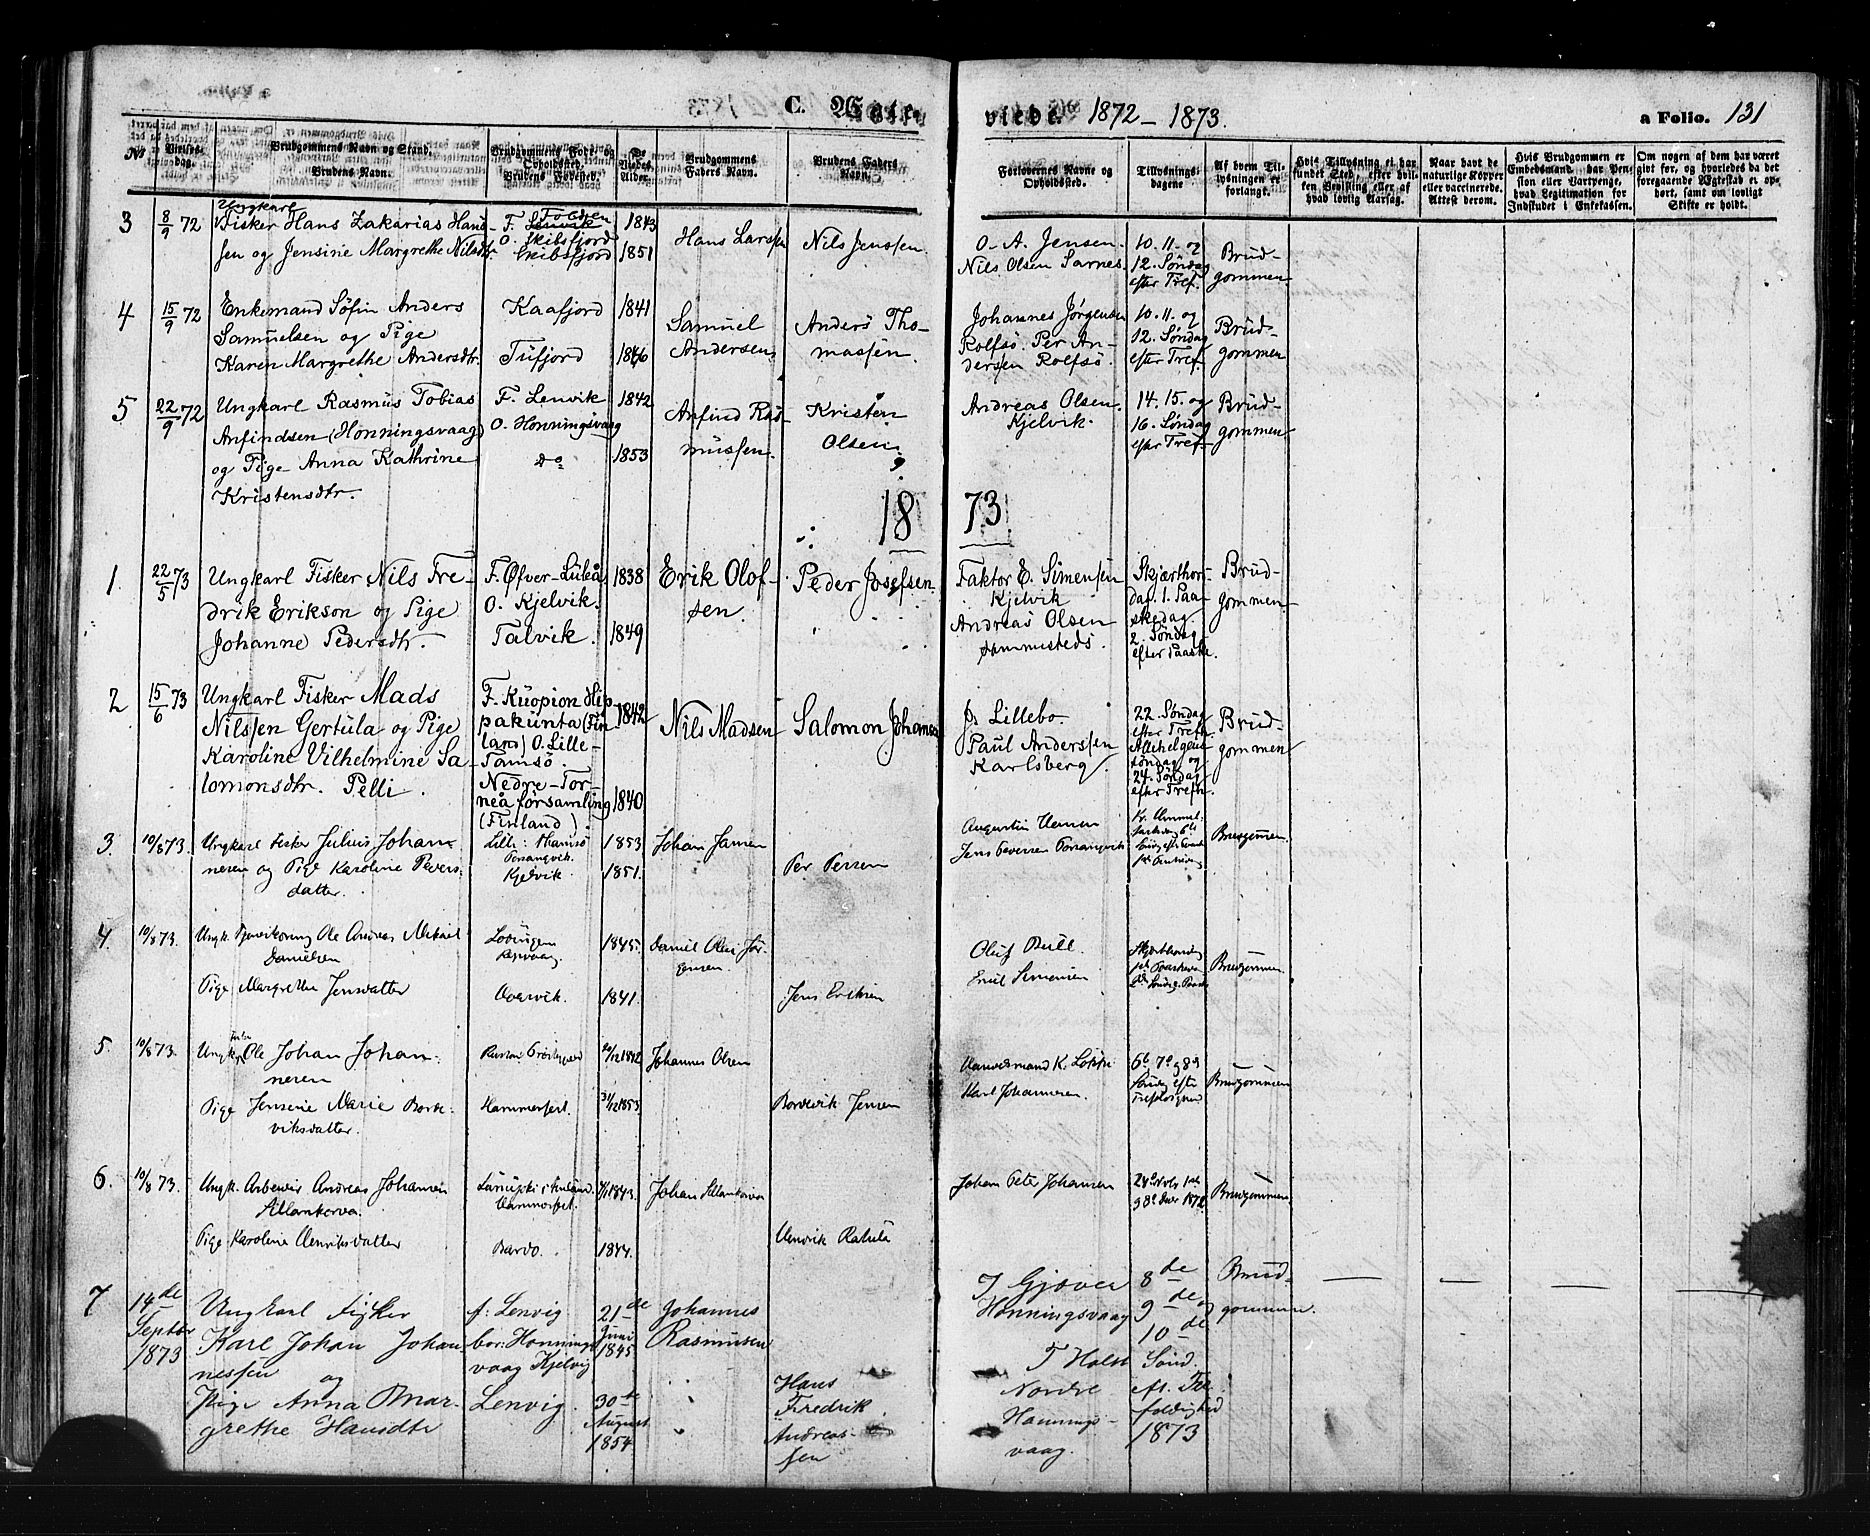 C. Egte-
viede. 1872-1873.
a Folio. 131
No
Vielses-
dag.
Brudgommens Navn og Stand.
Brudens Navn.
Brudgommens Føde- og
Opholdssted.
Brudens Fødested.
De
Viedes
Alder.
Brudgommens
Faders Navn.
Brudens Faders
Navn.
Forlovernes Navne og
Opholdssted.
Tillysnings-
dagene
Af hvem Til-
lysningen er
forlangt.
Hvis Tillysning ei har
fundet Sted, efter hvil-
ken Bevilling eller af
hvad lovlig Aarsag.
Naar havt de
naturlige Kopper
eller vaccinerede.
Attest derom.
Hvis Brudgommen er
Embedsmand, har Pen-
sion eller Vartpenge,
hvad Legitimation for
Indskudet i Enkekassen.
Om nogen af dem har været
gift før, og hvorledes da det
foregaaende Ægteskab er op-
hørt, samt om lovligt
Skifte er holdt.
3 8/9 72 Ungkarl
Fisker Hans Zakarias Han-
sen og Jensine Margrethe Nilsdtr.
F. Lenvik
O. Skibsfjord
Skibsfjord
1843
1851
Hans Larssen
Nils Jenssen.
O. A. Jensen.
Nils Olsen Sarnes.
10. 11. og
12. Søndag
efter Tref.
Brud-
gommen
4 15/9 72 Enkemand Søfin Anders
Samuelsen og Pige
Karen Margrethe Andersdtr.
Kaafjord
Tufjord
1841
1846
Samuel
Andersen
Anders Tho-
massen.
Johannes Jørgensen
Rolfsö. Per An-
derssen Rolfsö.
10. 11. og
12. Søndag
efter Tref.
Brud-
gommen
5 22/9 72 Ungkarl Rasmus Tobias
Anfindsen (Honningsvaag)
og Pige Anna Kathrine
Kristensdtr.
F. Lenvik
O. Honningsvaag
do
1842
1853
Anfind Ras-
mussen.
Kristen
Olsen
Andreas Olsen.
Kjelvik.
14. 15. og
16. Søndag
efter Tref.
Brud-
gommen
1873
1. 22/5 73 Ungkarl Fisker Nils Fre-
drik Erikson og Pige
Johanne Pedersdtr.
F. Øfver-Lukå
O. Kjelvik.
Talvik.
1838
1849
Erik Olof-
sen.
Peder Josefsen
Faktor E. Simensen
Kjelvik
Andreas Olsen
sammesteds.
Skjærthors-
dag. 1. Paa-
skedag.
2. Søndag
efter Paaske.
Brud-
gommen
2 15/6 73 Ungkarl Fisker Mads
Nilssen Gertula og Pige
Karoline Vilhelmine Sa-
lomonsdtr. Pelli.
F. Kuopion
pakunta (Fin-
land) O. Lille-
Tamsö.
Nedre-Tor-
neå församling
(Finland)
1842
1840
Nils Madsen
Salomon Johansen
J. Lillebo.
Paul Anderssen
Karlsberg.
22. Søndag
efter Tref.
Allehelgens
søndag og
24. Søndag
efter Trefh.
Brud-
gommen
3. 10/8 73. Ungkarl Fisker Julius Johan-
nesen og Pige Karoline Peders-
datter.
Lille Thamsö
Porsangvik.
Kjelvik.
1853
1851.
Johan Jansen
Per Persen
Jens Pedersen Porsangvik
Brudgommen.
4. 10/8 73. Ungk. Ole Andreas Mikael
Danielsen
Pige Margrethe Jensdatter
Lödingen
1845.
1841.
Daniel Olai Jør-
gensen.
Jens Eriksen
Oluf Bull
Emil Simensen
Brudgommen.
5. 10/8 73. Ungk. Ole Johan Johan-
nesen
Pige Jensine Marie Bork-
viksdatter.
Hammerfest.
20/12 1842
31/12 1853
Johannes Olsen
Bordevik Jensen
Karl Johannesen.
6te 7de og 8de
Søndag efter
Brudgommen
6. 10/8 73. Ungk. Arbeider Andreas Johansen
Pige Karoline Henriksdatter
Hammerfest.
Bardo.
1844.
Henrik Ratula
Johan Peter Johansen
Brudgommen
7 14de
Septbr
1873
Ungkarl Fisker
Karl Johan Johan-
nessen og
Pige Anna Mar-
grethe Hansdtr
f. Lenvig
bor. Honnings-
vaag Kjelvig
Lenvig.
21de
Juni
1845
30te
August
1854
Johannes
Rasmusen
Hans
Fredrik
Andreas-
sen
J. Gjøver
Honningsvaag
T Holst
Nordre
Honnings-
vaag.
8de
9de og
10de
Sønd.
ef. Tre-
foldighed
1873
Brud-
gommen.